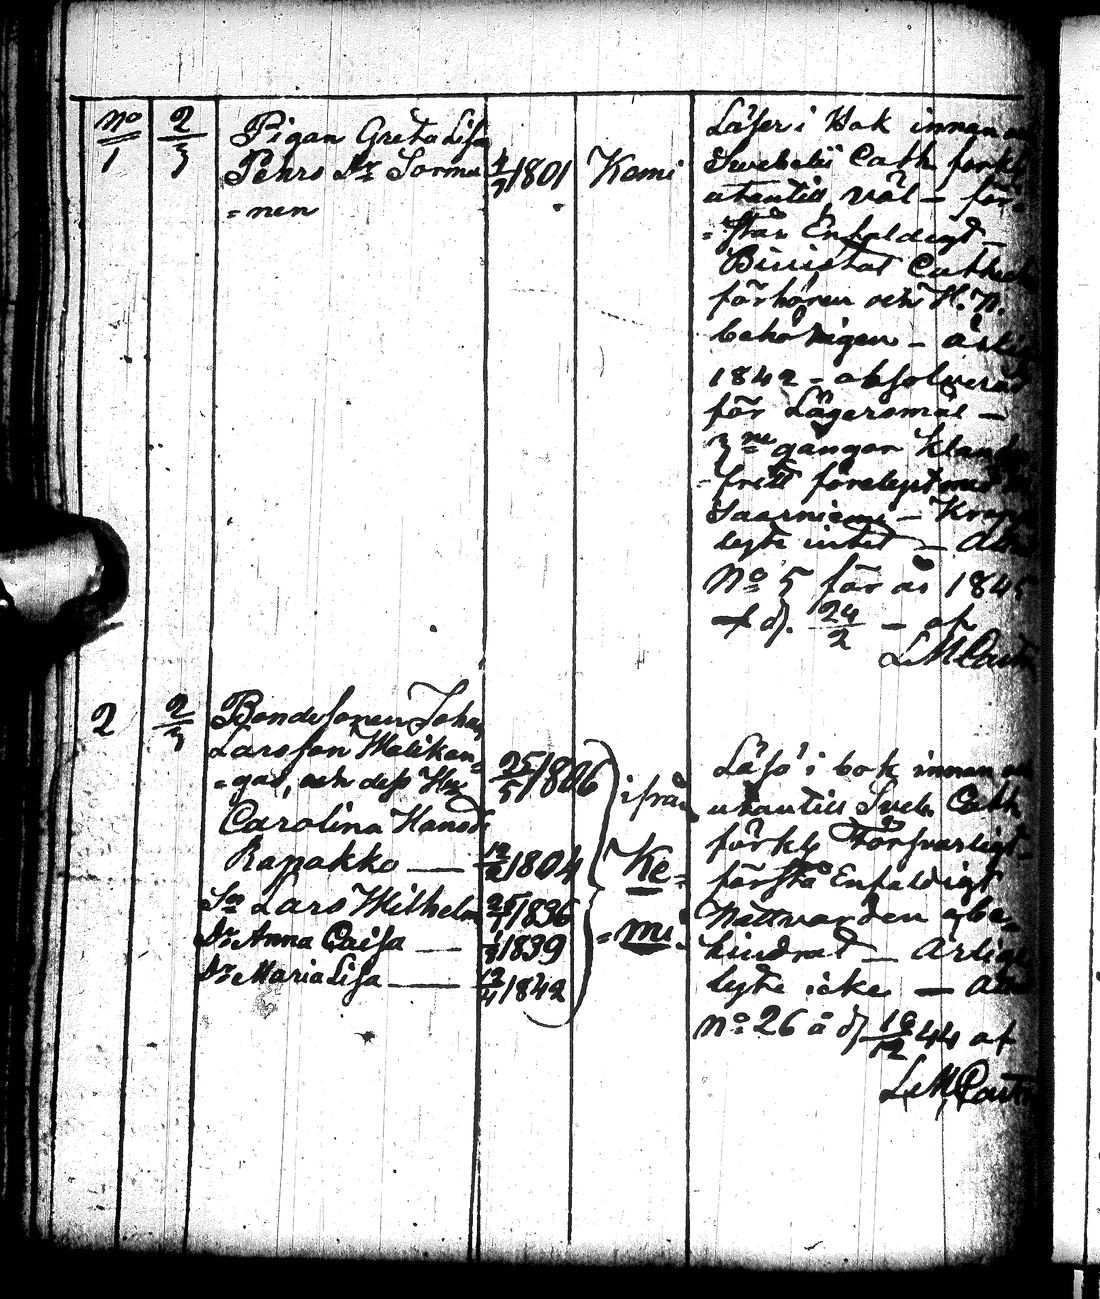 No 1
2/3
Pigan Greta Lisa
Pehrs Dr Sorma
=nen
4/7 1801
Kemi
Läser i Bok innan
Swebelii Cath förkl
utantill väl – för=
=står Enfaldigt –
Biuistat Cathech
förhören och H.N.
behörigen – ärlig
1842 – absolverad
för Lägersmål –
3ne gångor klander
=fritt förelyst med
Saarniemi – Kropp
lyte intet –
No 5 för år 1845
d. 24/2 – af
LMCastr
2
2/3
Bondesonen Johan
Larsson Matikan=
=gas, och dess Hu
Carolina Hansdr
Rapakko —
Sn Lars Wilhelm
Dr Anna Caisa —
Dr Maria Lisa —
25/5 1806
12/2 1804
1836
1839
12/4 1842
ifrån
Ke=
=mi.
Läsa i bok innan
utantill Sveb. Cath
förkl. Försvarligt –
förstå Enfaldigt
Nattvarden obe=
hindrat – ärlige
lyte icke –
No 26 d 44 af
LMCastr